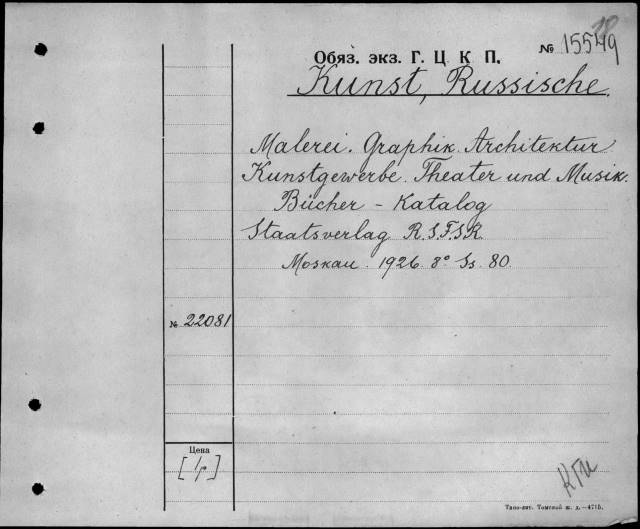 Обяз. экз. Г. Ц. К. П. № 15549
Kunst, Russische.
Malerei. Graphik. Architektur
Kunstgewerbe. Theater und Musik.
Bücher – Katalog
Staatsverlag R.S.F.S.R.
Moskau. 1926. 8° Ss. 80.
№ 22081
Цена
[1р]
Кти
Типо-лит. Томской ж. д.—4715.